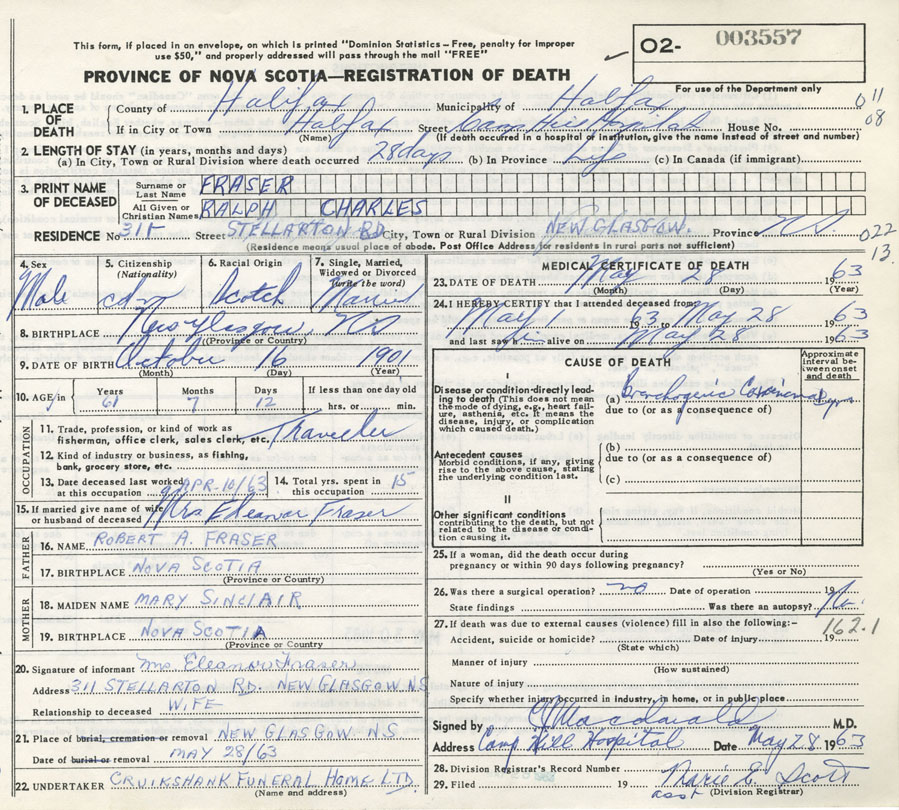 This form, if placed in an envelope, on which is printed "Dominion Statistics—Free, penalty for improper
use $50," and properly addressed will pass through the mail "FREE"
O2- 003557
For use of the Department only
PROVINCE OF NOVA SCOTIA—REGISTRATION OF DEATH
1. PLACE OF DEATH
County of Halifax Municipality of Halifax 011
If in City or Town Halifax Street Camp Hill Hospital House No. 08
(Name) (If death occurred in a hospital or institution, give the name instead of street and number)
2. LENGTH OF STAY (in years, months and days)
(a) In City, Town or Rural Division where death occurred 28 days (b) In Province Life (c) In Canada (if immigrant)
3. PRINT NAME OF DECEASED
Surname or Last Name FRASER
All Given or Christian Names RALPH CHARLES
RESIDENCE No. 311 Street STELLARTON RD City, Town or Rural Division NEW GLASGOW. Province N.S. 022
(Residence means usual place of abode. Post Office Address for residents in rural parts not sufficient) 13.
4. Sex Male
5. Citizenship (Nationality) cdn
6. Racial Origin Scotch
7. Single, Married, Widowed or Divorced (write the word) Married
8. BIRTHPLACE New Glasgow, NS
(Province or Country)
9. DATE OF BIRTH October 16 1901
(Month) (Day) (Year)
10. AGE in Years 61 Months 7 Days 12 If less than one day old hrs. or min.
OCCUPATION
11. Trade, profession, or kind of work as fisherman, office clerk, sales clerk, etc. Traveller
12. Kind of industry or business, as fishing, bank, grocery store, etc.
13. Date deceased last worked at this occupation APR-10/63
14. Total yrs. spent in this occupation 15
15. If married give name of wife or husband of deceased Mrs Eleanor Fraser
FATHER
16. NAME ROBERT A. FRASER
17. BIRTHPLACE NOVA SCOTIA
(Province or Country)
MOTHER
18. MAIDEN NAME MARY SINCLAIR
19. BIRTHPLACE NOVA SCOTIA
(Province or Country)
20. Signature of informant Mrs Eleanor Fraser
Address 311 STELLARTON RD. NEW GLASGOW NS
Relationship to deceased WIFE
21. Place of burial, cremation or removal NEW GLASGOW. N.S
Date of burial or removal MAY 28/63
22. UNDERTAKER CRUIKSHANK FUNERAL HOME LTD
(Name and address)
MEDICAL CERTIFICATE OF DEATH
23. DATE OF DEATH May 28 1963
(Month) (Day) (Year)
24. I HEREBY CERTIFY that I attended deceased from
May 1 1963 to May 28 1963
and last saw him alive on May 28 1963
CAUSE OF DEATH
Approximate interval between onset and death
I
Disease or condition directly leading to death (This does not mean the mode of dying, e.g., heart failure, asthenia, etc. It means the disease, injury, or complication which caused death.)
(a) Bronchogenic Carcinoma
due to (or as a consequence of)
Antecedent causes
Morbid conditions, if any, giving rise to the above cause, stating the underlying condition last.
(b)
due to (or as a consequence of)
(c)
II
Other significant conditions
contributing to the death, but not related to the disease or condition causing it.
25. If a woman, did the death occur during
pregnancy or within 90 days following pregnancy?
(Yes or No)
26. Was there a surgical operation? no Date of operation 19
State findings Was there an autopsy? No
27. If death was due to external causes (violence) fill in also the following:- 162.1
Accident, suicide or homicide? Date of injury 19
(State which)
Manner of injury
(How sustained)
Nature of injury
Specify whether injury occurred in industry, in home, or in public place
Signed by Macdonald M.D.
Address Camp Hill Hospital Date May 28 1963
28. Division Registrar's Record Number
29. Filed 19 Marie E. Scott
asst (Division Registrar)